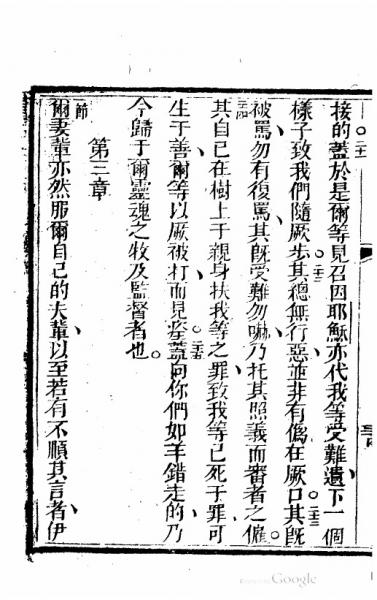 接的○二十一蓋於是爾等見召因耶穌亦代我等受難遺下一個
樣子致我們隨厥步○二十二其總無行惡並非有僞在厥口○二十三其旣
被罵勿有復罵其旣受難勿嚇乃托其照義而審者之僱○
二十四其自己在樹上于親身扶我等之罪致我等已死于罪可
生于善爾等以厥被打而見痊○二十五蓋向你們如羊錯走的乃
今歸于爾靈魂之牧及監督者也○
第三章
節 爾妻輩亦然服爾自己的夫輩以至若有不順其言者伊
Google